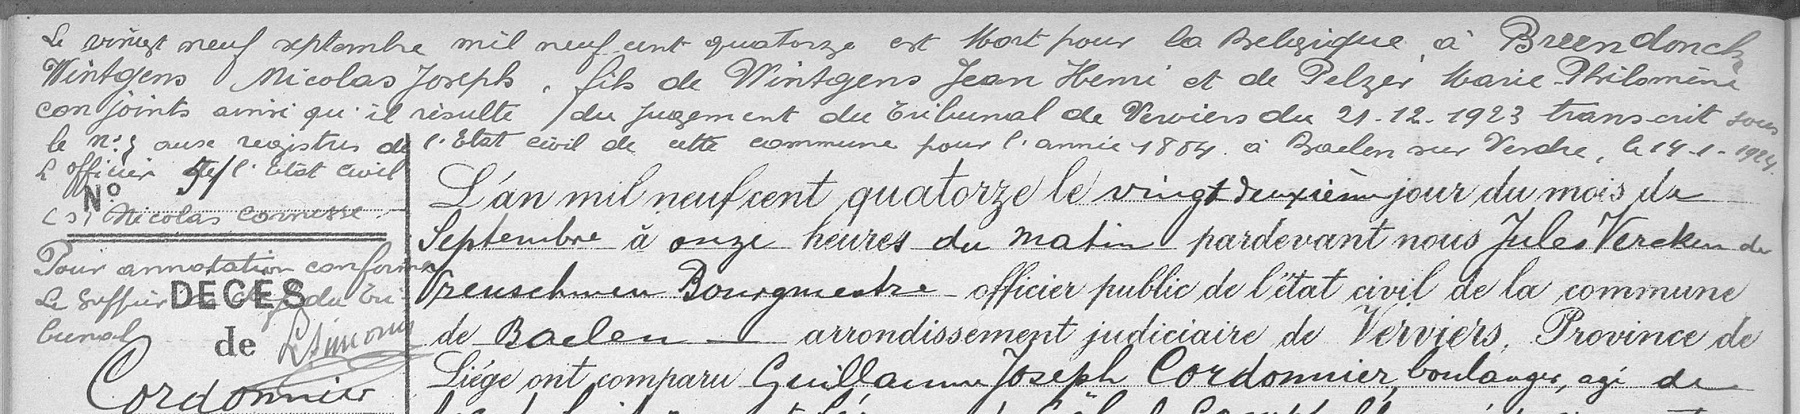 Le vingt neuf septembre mil neuf cent quatorze est Mort pour la Belgique, à Breendonck
Wintgens Nicolas Joseph, fils de Wintgens Jean Henri et de Pelzer Marie-Philomène
conjoints ainsi qu'il résulte du jugement du Tribunal de Verviers du 21-12-1923 transcrit sous
le n°3 aux registres de l'Etat civil de cette commune pour l'année 1884. à Baelen sur Vesdre, le 14-1-1924.
L'officier de l'Etat civil
(s) Nicolas Cornesse
Pour annotation conforme
Le Greffier du Tri-
bunal
N° 51
DECES
de
Cordonnier
L'an mil neuf cent quatorze le vingt deuxième jour du mois de
Septembre à onze heures du matin pardevant nous Jules Vercken de
Vreuschmen Bourgmestre officier public de l'état civil de la commune
de Baelen arrondissement judiciaire de Verviers, Province de
Liége ont comparu Guillaume Joseph Cordonnier, boulanger, agé de